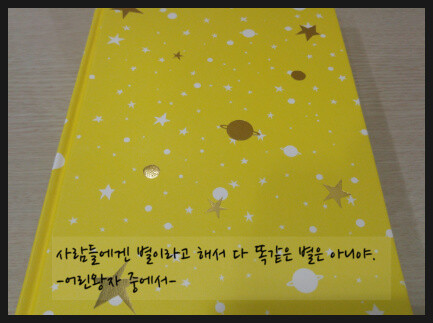 사람들에겐 별이라고 해서 다 똑같은 별은 아니야.
-어린왕자 중에서-